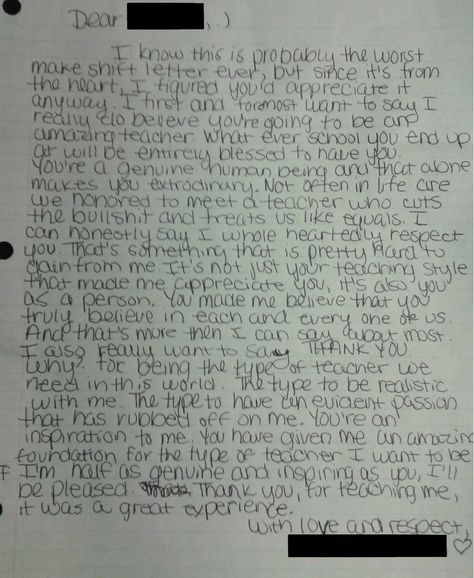 Dear , :)
I know this is probably the worst
make shift letter ever, but since it's from
the heart, I figured you'd appreciate it
anyway. I first and foremost want to say I
really do believe you're going to be an
amazing teacher. What ever school you end up
at will be entirely blessed to have you.
You're a genuine human being and that alone
makes you extrodinary. Not often in life are
we honored to meet a teacher who cuts
the bullshit and treats us like equals. I
can honestly say I whole heartedly respect
you. That's something that is pretty hard to
gain from me. It's not just your teaching style
that made me appreciate you, it's also you
as a person. You made me believe that you
truly believe in each and every one of us.
And that's more then I can say about most.
I also really want to say THANK YOU.
Why? for being the type of teacher we
need in this world. The type to be realistic
with me. The type to have an evident passion
that has rubbed off on me. You're an
inspiration to me. You have given me an amazing
foundation for the type of teacher I want to be
If I'm half as genuine and inspiring as you, I'll
be pleased. Thank you, for teaching me,
it was a great experience.
With love and respect,